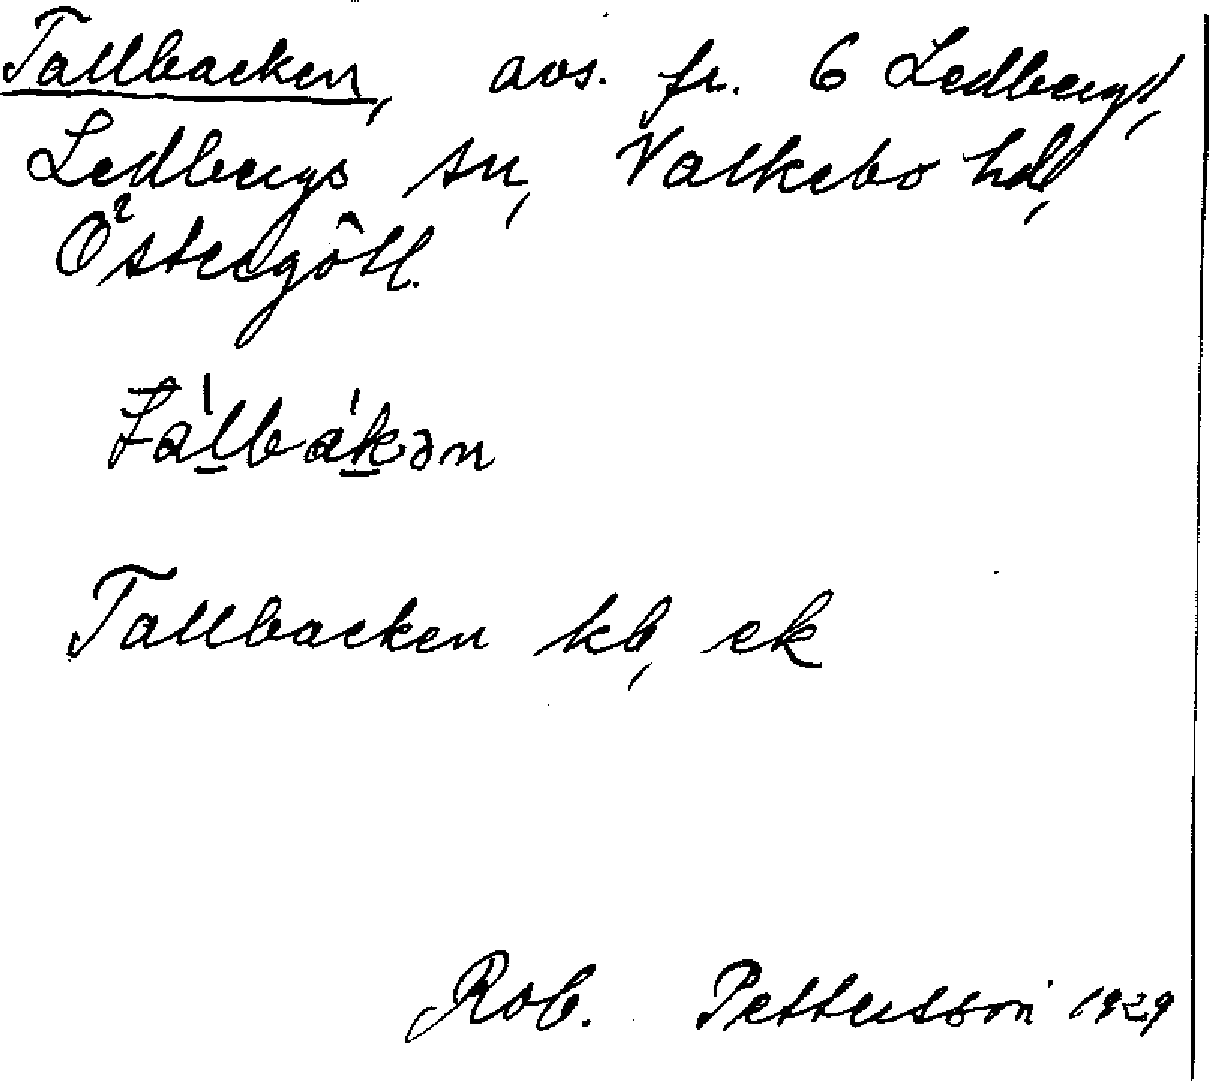 Tallbacken, avs. fr. 6 Ledberg,
Ledbergs sn, Valkebo hd,
Östergötl.
tálbákən
Tallbacken kb, ek
Rob. Pettersson 1929